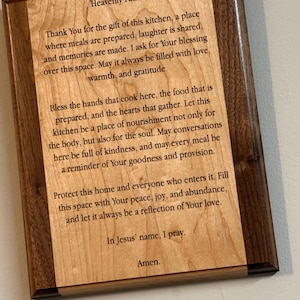 Heavenly
Thank You for the gift of this kitchen, a place
where meals are prepared, laughter is shared,
and memories are made. I ask for Your blessing
over this space. May it always be filled with love,
warmth, and gratitude.
Bless the hands that cook here, the food that is
prepared, and the hearts that gather. Let this
kitchen be a place of nourishment not only for
the body, but also for the soul. May conversations
here be full of kindness, and may every meal be
a reminder of Your goodness and provision.
Protect this home and everyone who enters it. Fill
this space with Your peace, joy, and abundance,
and let it always be a reflection of Your love.
In Jesus' name, I pray.
Amen.